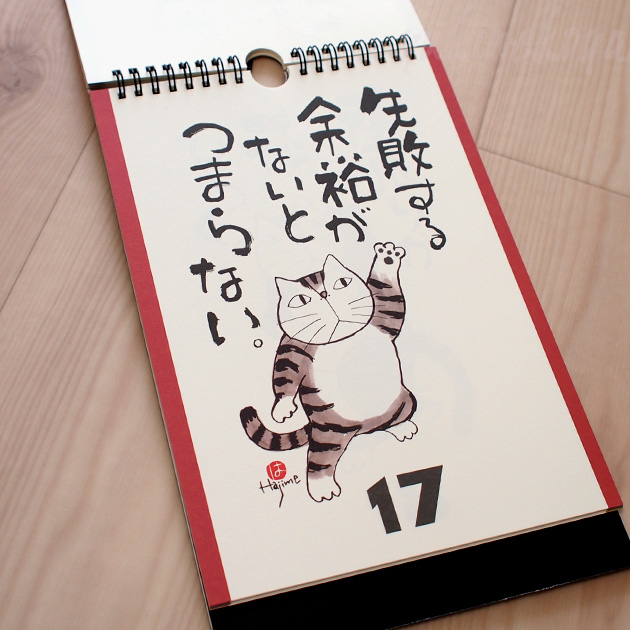 失敗する
余裕が
ないと
つまらない。
は
Hajime
17